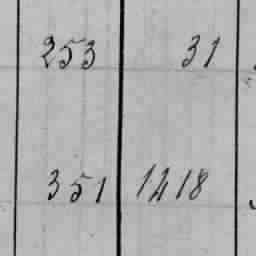 253 31
351 1418